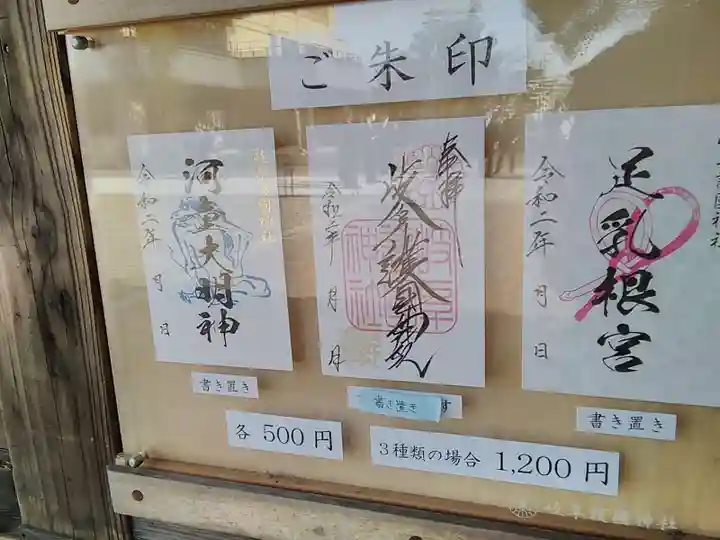 ご朱印
河童大明神
令和二年 月 日
奉拝
岐阜護國神社
令和二年 月 日
足乳根宮
令和二年 月 日
書き置き
書き置き
す
書き置き
各 500 円
3種類の場合 1,200 円
岐阜護國神社